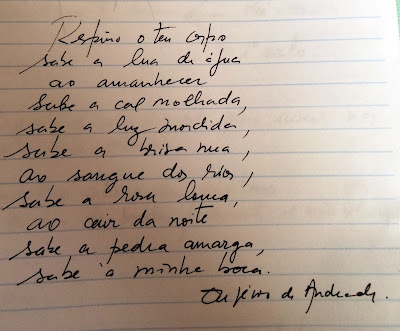 Respiro o teu corpo
sabe a lua de água
ao amanhecer
sabe a cal molhada,
sabe a luz mordida,
sabe a brisa nua,
ao sangue dos rios,
sabe a rosa louca,
ao cair da noite
sabe a pedra amarga,
sabe à minha boca.
Eugénio de Andrade.